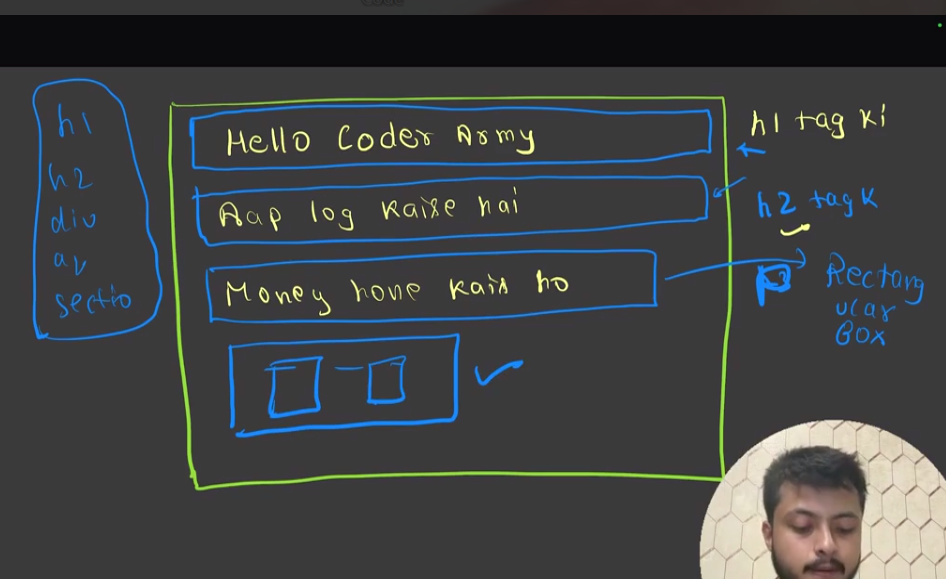 h1
h2
div
av
sectio
Hello Coder Army
Aap log kaise hai
Money hone kais ho
h1 tag ki
h2 tag k
Rectang
ular
Box